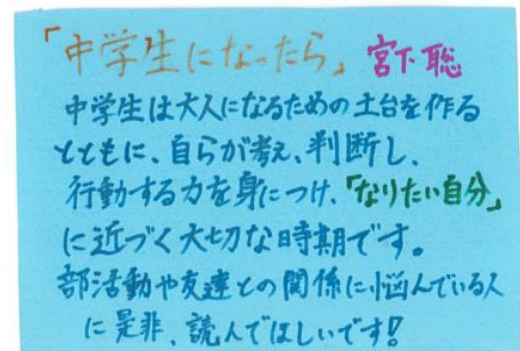 「中学生になったら」 宮下聡
中学生は大人になるための土台を作る
とともに、自らが考え、判断し、
行動する力を身につけ、「なりたい自分」
に近づく大切な時期です。
部活動や友達との関係に悩んでいる人
に是非、読んでほしいです!